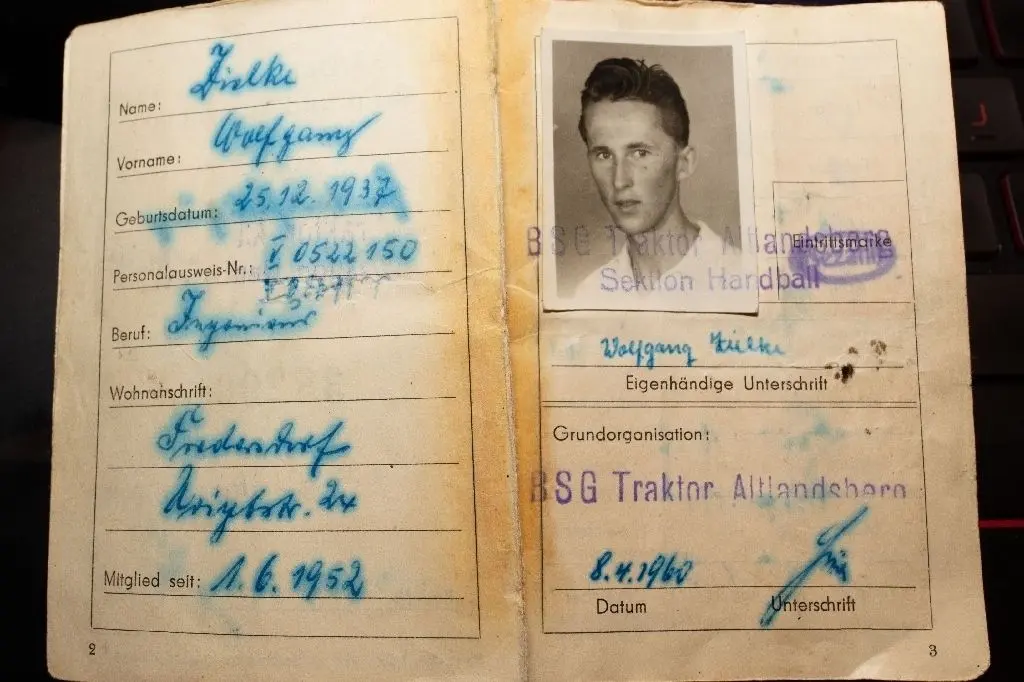 Name: Zielke
Vorname: Wolfgang
Geburtsdatum: 25.12.1937
Personalausweis-Nr.: V 0522150
Beruf: Ingenieur
Wohnanschrift:
Fredersdorf
24
Mitglied seit: 1.6.1952
2
BSG Traktor Altlandsberg
Sektion Handball
Eintrittsmarke
Wolfgang Zielke
Eigenhändige Unterschrift
Grundorganisation:
BSG Traktor Altlandsberg
8.4.1960
Datum
Unterschrift
3